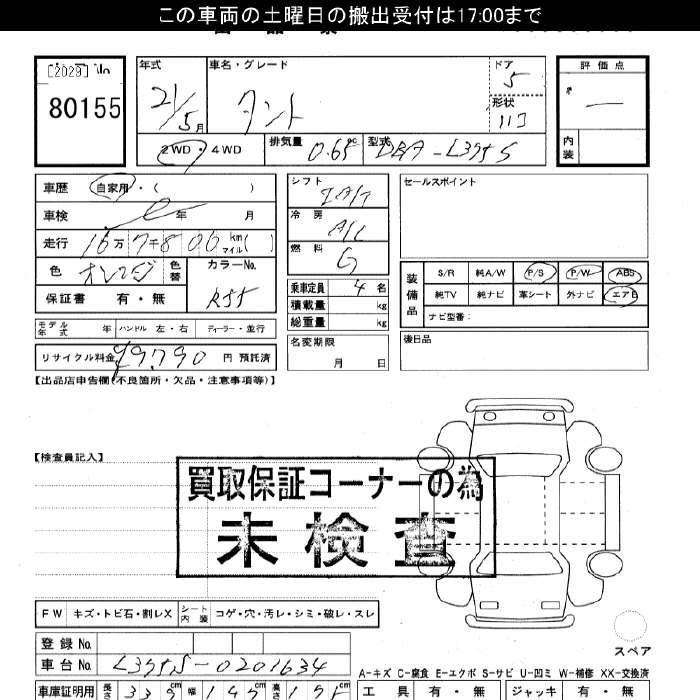 この車両の土曜日の搬出受付は17:00まで
[2029] No
80155
年式 21/5月
車名・グレード タント
ドア 5
形状
評価点 —
内装
2WD・4WD
排気量 0.65 cc
型式 DBA-L375S
車歴 自家用・( )
車検 年 月
走行 16万7千806 km マイル( )
色 オレンジ 色替
カラーNo. R55
保証書 有・無
シフト IAT
冷房 A/C
燃料 G
乗車定員 4 名
積載量 kg
総重量 kg
名変期限
月 日
セールスポイント
装備品
S/R 純A/W P/S P/W ABS
純TV 純ナビ 革シート 外ナビ エアB
ナビ型番:
後日品
モデル年式 年 ハンドル 左・右 ディーラー・並行
リサイクル料金 ¥9,790 円 預託済
【出品店申告欄(不良箇所・欠品・注意事項等)】
【検査員記入】
買取保証コーナーの為
未検査
FW キズ・トビ石・割レX シート内装 コゲ・穴・汚レ・シミ・破レ・スレ
スペア
登録No.
車台No. L375S-0201634
A-キズ C-腐食 E-エクボ S-サビ U-凹ミ W-補修 XX-交換済
車庫証明用 長さ 339 cm 幅 147 cm 高さ cm
工具 有・無 ジャッキ 有・無